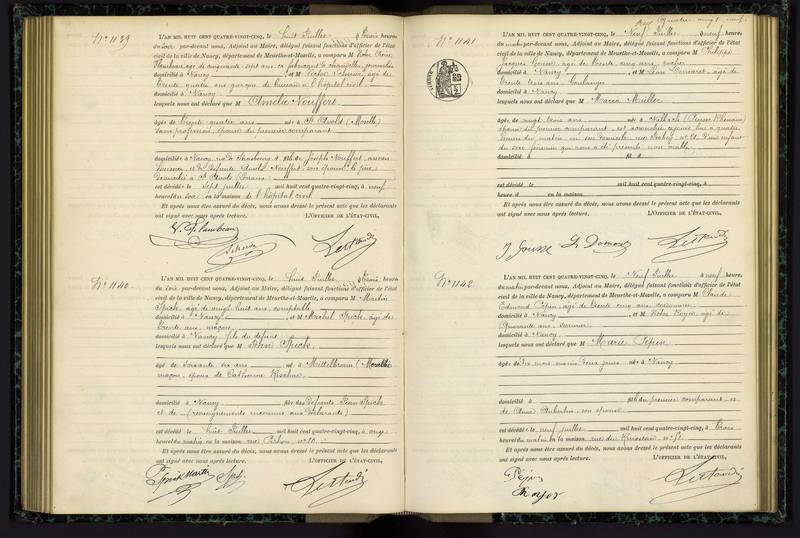 N° 1139
L'AN MIL HUIT CENT QUATRE-VINGT-CINQ, le huit Juillet à trois heures
du soir par-devant nous, Adjoint au Maire, délégué faisant fonctions d'officier de l'état
civil de la ville de Nancy, département de Meurthe-et-Moselle, a comparu M
Flambeau, âgé de cinquante sept ans, ex fabricant de chandelles,
domicilié à Nancy, et M âgé de
trente quatre ans, garçon de à l'hôpital civil
domicilié à Nancy
lesquels nous ont déclaré que M Amélie Nouffert
âgée de trente quatre ans née à St Avold (Moselle)
sans profession, épouse du premier comparant
domiciliée à Nancy, rue de Strasbourg fille de Joseph Nouffert, ancien
et de défunte Nouffert, son épouse, le père
domicilié à St Avold
est décédée le sept juillet mil huit cent quatre-vingt-cinq, à neuf
heures du soir en la maison de l'hôpital civil
Et après nous être assuré du décès, nous avons dressé le présent acte que les déclarants
ont signé avec nous après lecture. L'OFFICIER DE L'ÉTAT-CIVIL,
Flambeau
N° 1140
L'AN MIL HUIT CENT QUATRE-VINGT-CINQ, le huit Juillet à trois heures
du soir par-devant nous, Adjoint au Maire, délégué faisant fonctions d'officier de l'état
civil de la ville de Nancy, département de Meurthe-et-Moselle, a comparu M Martin
Spick, âgé de vingt huit ans, comptable
domicilié à Nancy, et M Michel Spick, âgé de
trente ans, maçon
domicilié à Nancy, fils du défunt
lesquels nous ont déclaré que M Jean Spick
âgé de soixante dix ans né à Mittelbronn (Meurthe)
maçon, époux de Catherine
domicilié à Nancy fils des défunts Jean Spick
et de (renseignements inconnus aux déclarants)
est décédé le huit Juillet mil huit cent quatre-vingt-cinq, à onze
heures du matin en la maison, rue Pichon n° 10
Et après nous être assuré du décès, nous avons dressé le présent acte que les déclarants
ont signé avec nous après lecture. L'OFFICIER DE L'ÉTAT-CIVIL,
Spick Martin Spick
quatre vingt neuf
N° 1141
L'AN MIL HUIT CENT QUATRE-VINGT-CINQ, le neuf Juillet à neuf heures
du matin par-devant nous, Adjoint au Maire, délégué faisant fonctions d'officier de l'état
civil de la ville de Nancy, département de Meurthe-et-Moselle, a comparu M Philippe
Jacques âgé de trente cinq ans,
domicilié à Nancy, et M Jean âgé de
trente trois ans, boulanger
domicilié à Nancy
lesquels nous ont déclaré que M Maria Müller
âgée de vingt trois ans née à (Prusse Rhénane)
épouse du premier comparant, est accouchée à quatre
heures du matin, en son domicile, n° 21, d'un enfant
du sexe féminin qui nous a été présenté non viable
domicilié à fil d
est décédé le mil huit cent quatre-vingt-cinq, à
heure d en la maison
Et après nous être assuré du décès, nous avons dressé le présent acte que les déclarants
ont signé avec nous après lecture. L'OFFICIER DE L'ÉTAT-CIVIL,
N° 1142
L'AN MIL HUIT CENT QUATRE-VINGT-CINQ, le neuf Juillet à neuf heures
du matin par-devant nous, Adjoint au Maire, délégué faisant fonctions d'officier de l'état
civil de la ville de Nancy, département de Meurthe-et-Moselle, a comparu M Claude
Edmond Pépin, âgé de trente cinq ans, cordonnier
domicilié à Nancy, et M âgé de
quarante ans,
domicilié à Nancy
lesquels nous ont déclaré que M Marie Pépin
âgée de dix mois moins deux jours née à Nancy
domicilié à fille du premier comparant et
de Anna son épouse
est décédée le neuf juillet mil huit cent quatre-vingt-cinq, à trois
heures du matin en la maison, rue du Ruisseau n° 51
Et après nous être assuré du décès, nous avons dressé le présent acte que les déclarants
ont signé avec nous après lecture. L'OFFICIER DE L'ÉTAT-CIVIL,
Pépin